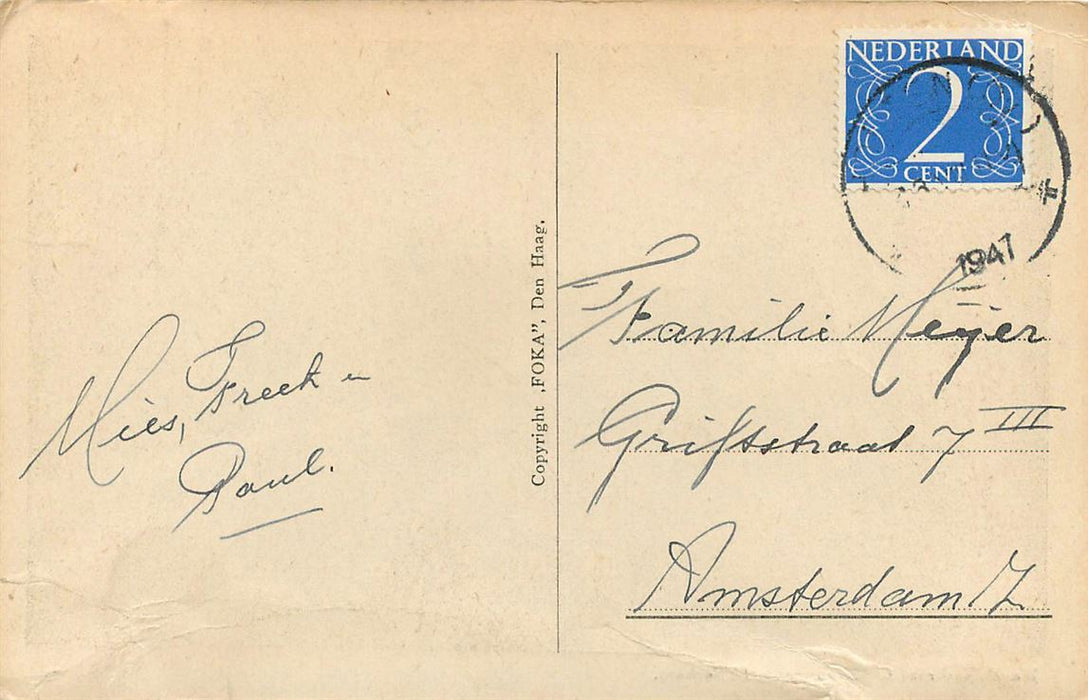 NEDERLAND
2
CENT
1947
Copyright „FOKA”, Den Haag.
Mies, Freek en
Paul.
Familie Meijer
Griftstraat 7 III
Amsterdam Z